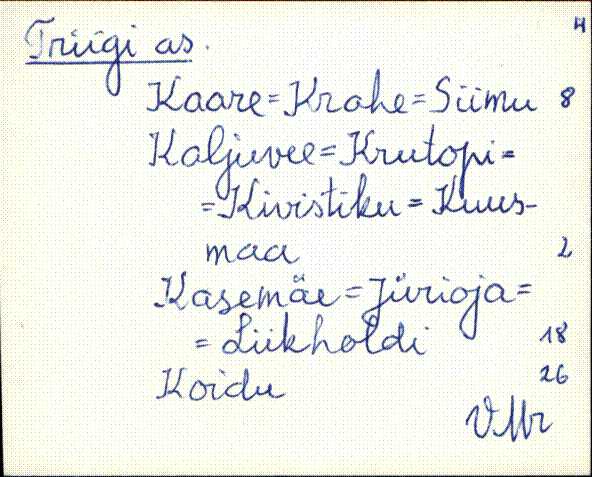 4
Triigi as.
Kaare = Krahe = Siimu 8
Kaljuvee = Krutopi =
= Kivistiku = Kuus-
maa 2
Kasemäe = Jürioja =
= Liikholdi 18
Koidu 26
VMr